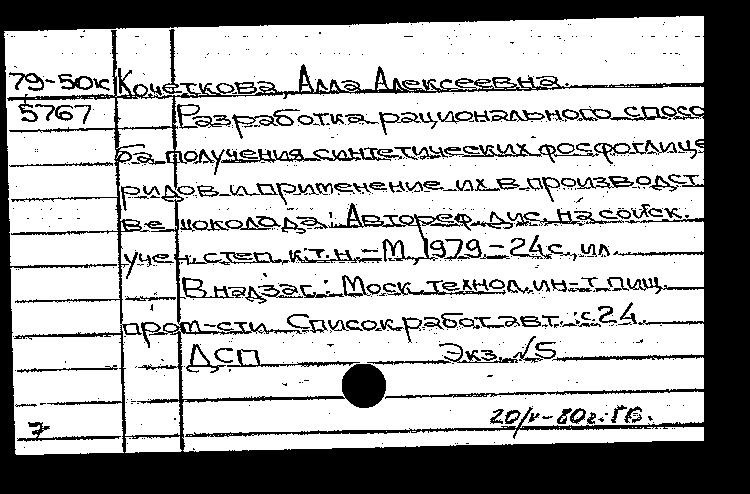 79-50к Кочеткова, Алла Алексеевна.
5767 Разработка рационального спосо
ба получения синтетических фосфоглице
ридов и применение их в производст
ве шоколада: Автореф. дис. на соиск.
учен. степ. к.т.н. – М., 1979 – 24с., ил.
В надзаг.: Моск. технол. ин-т пищ.
пром-сти. Список работ авт.: с 24.
ДСП Экз. √5
20/V-80г. ГБ.
7